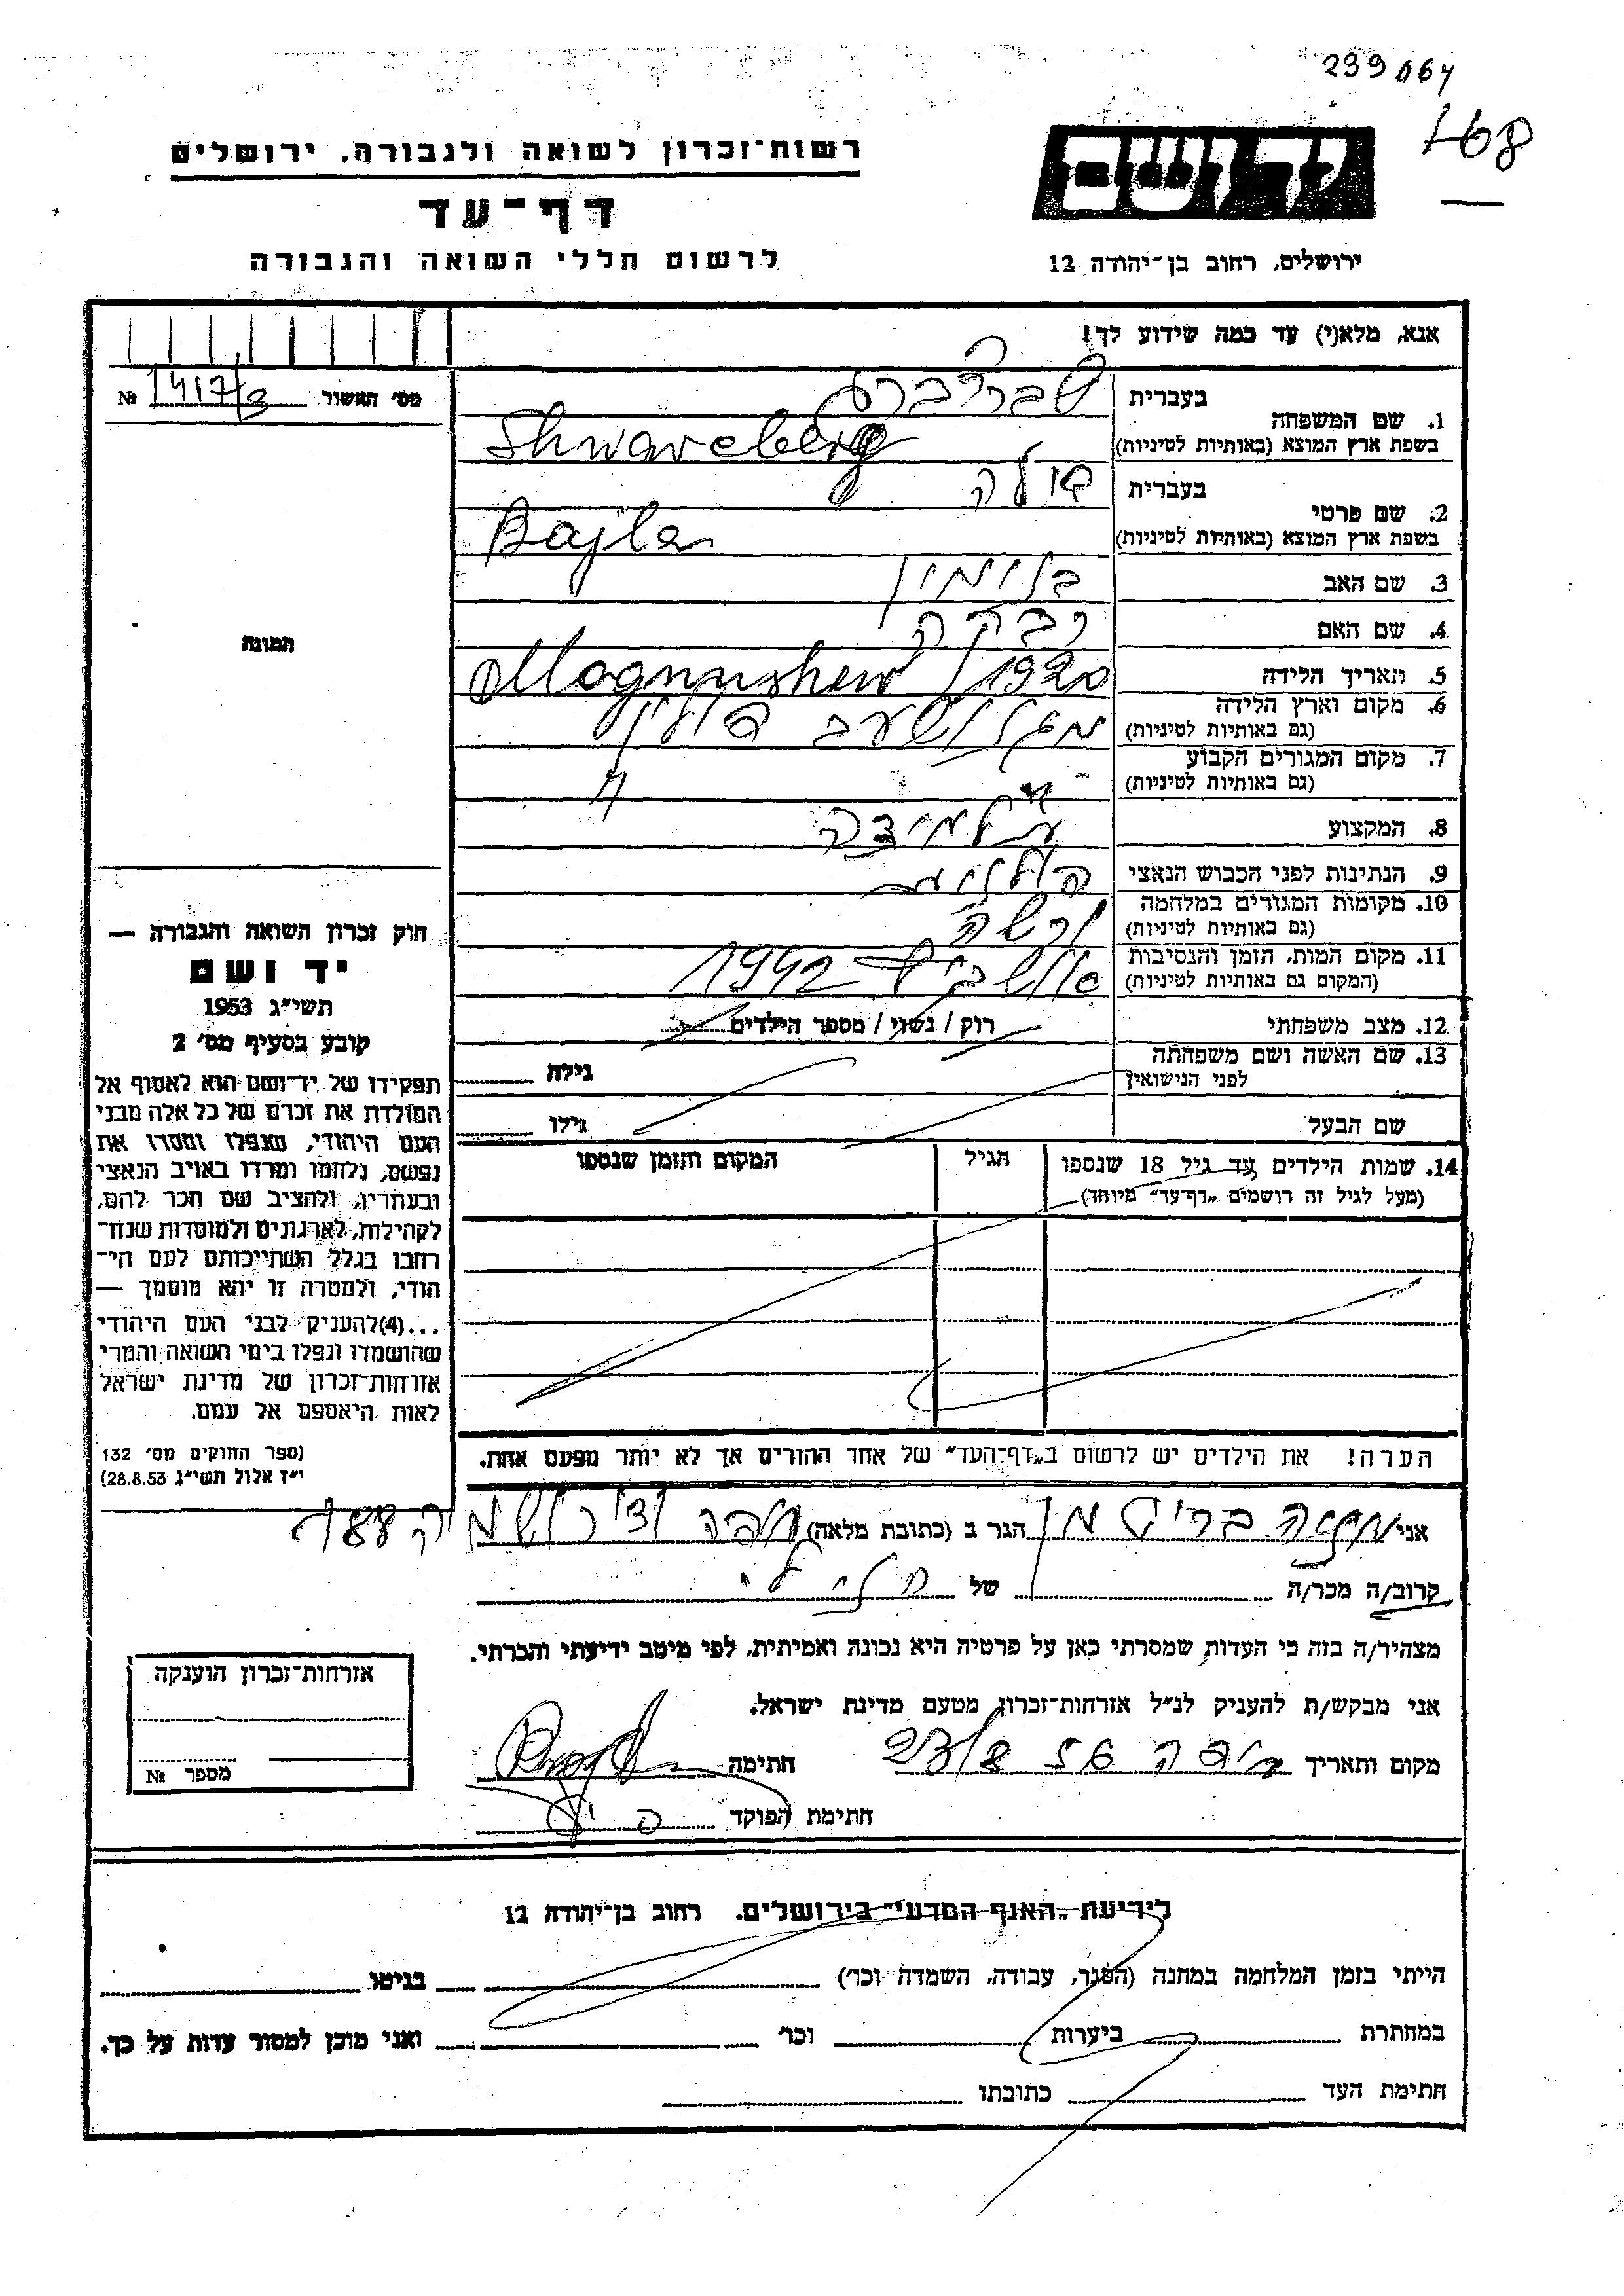 239064
768
רשות־זכרון לשואה ולגבורה, ירושלים
דף־עד
לרשום חללי השואה והגבורה
ידושם
ירושלים, רחוב בן־יהודה 12
אנא, מלא(י) עד כמה שידוע לך!
מס' האשור № 1417/3
תמונה
1. שם המשפחה
בעברית
בשפת ארץ המוצא (באותיות לטיניות) Shwarcberg
2. שם פרטי
בעברית
בשפת ארץ המוצא (באותיות לטיניות) Bajla
3. שם האב בנימין
4. שם האם רבקה
5. תאריך הלידה 1920
6. מקום וארץ הלידה Magnushew
(גם באותיות לטיניות) מגנושעב פולין
7. מקום המגורים הקבוע
(גם באותיות לטיניות) "
8. המקצוע תלמידה
9. הנתינות לפני הכבוש הנאצי פולנית
10. מקומות המגורים במלחמה
(גם באותיות לטיניות) ורשה
11. מקום המות, הזמן והנסיבות
(המקום גם באותיות לטיניות) 1942
12. מצב משפחתי רוק / נשוי / מספר הילדים
13. שם האשה ושם משפחתה
לפני הנישואין גילה
שם הבעל גילו
14. שמות הילדים עד גיל 18 שנספו
(מעל לגיל זה רושמים „דף־עד" מיוחד)
הגיל
המקום והזמן שנספו
חוק זכרון השואה והגבורה —
יד ושם
תשי"ג 1953
קובע בסעיף מס' 2
תפקידו של יד־ושם הוא לאסוף אל
המולדת את זכרם של כל אלה מבני
העם היהודי, שנפלו ומסרו את
נפשם, נלחמו ומרדו באויב הנאצי
ובעוזריו, ולהציב שם וזכר להם,
לקהילות, לארגונים ולמוסדות שנח־
רחבו בגלל השתייכותם לעם הי־
הודי, ולמטרה זו יהא מוסמך —
...(4)להעניק לבני העם היהודי
שהושמדו ונפלו בימי השואה והמרי
אזרחות־זכרון של מדינת ישראל
לאות היאספם אל עמם.
(ספר החוקים מס' 132
י"ז אלול תשי"ג 28.8.53)
הערה! את הילדים יש לרשום ב„דף־העד" של אחד ההורים אך לא יותר מפעם אחת.
אני הגר ב (כתובת מלאה)
קרוב/ה מכר/ה של
מצהיר/ה בזה כי העדות שמסרתי כאן על פרטיה היא נכונה ואמיתית, לפי מיטב ידיעתי והכרתי.
אני מבקש/ת להעניק לנ"ל אזרחות־זכרון מטעם מדינת ישראל.
מקום ותאריך חתימה
חתימת הפוקד
אזרחות־זכרון הוענקה
מספר №
לידיעת „האגף המדעי" בירושלים, רחוב בן־יהודה 12
הייתי בזמן המלחמה במחנה (הסגר, עבודה, השמדה וכו') בגיטו
במחתרת ביערות וכו' ואני מוכן למסור עדות על כך.
חתימת העד כתובתו